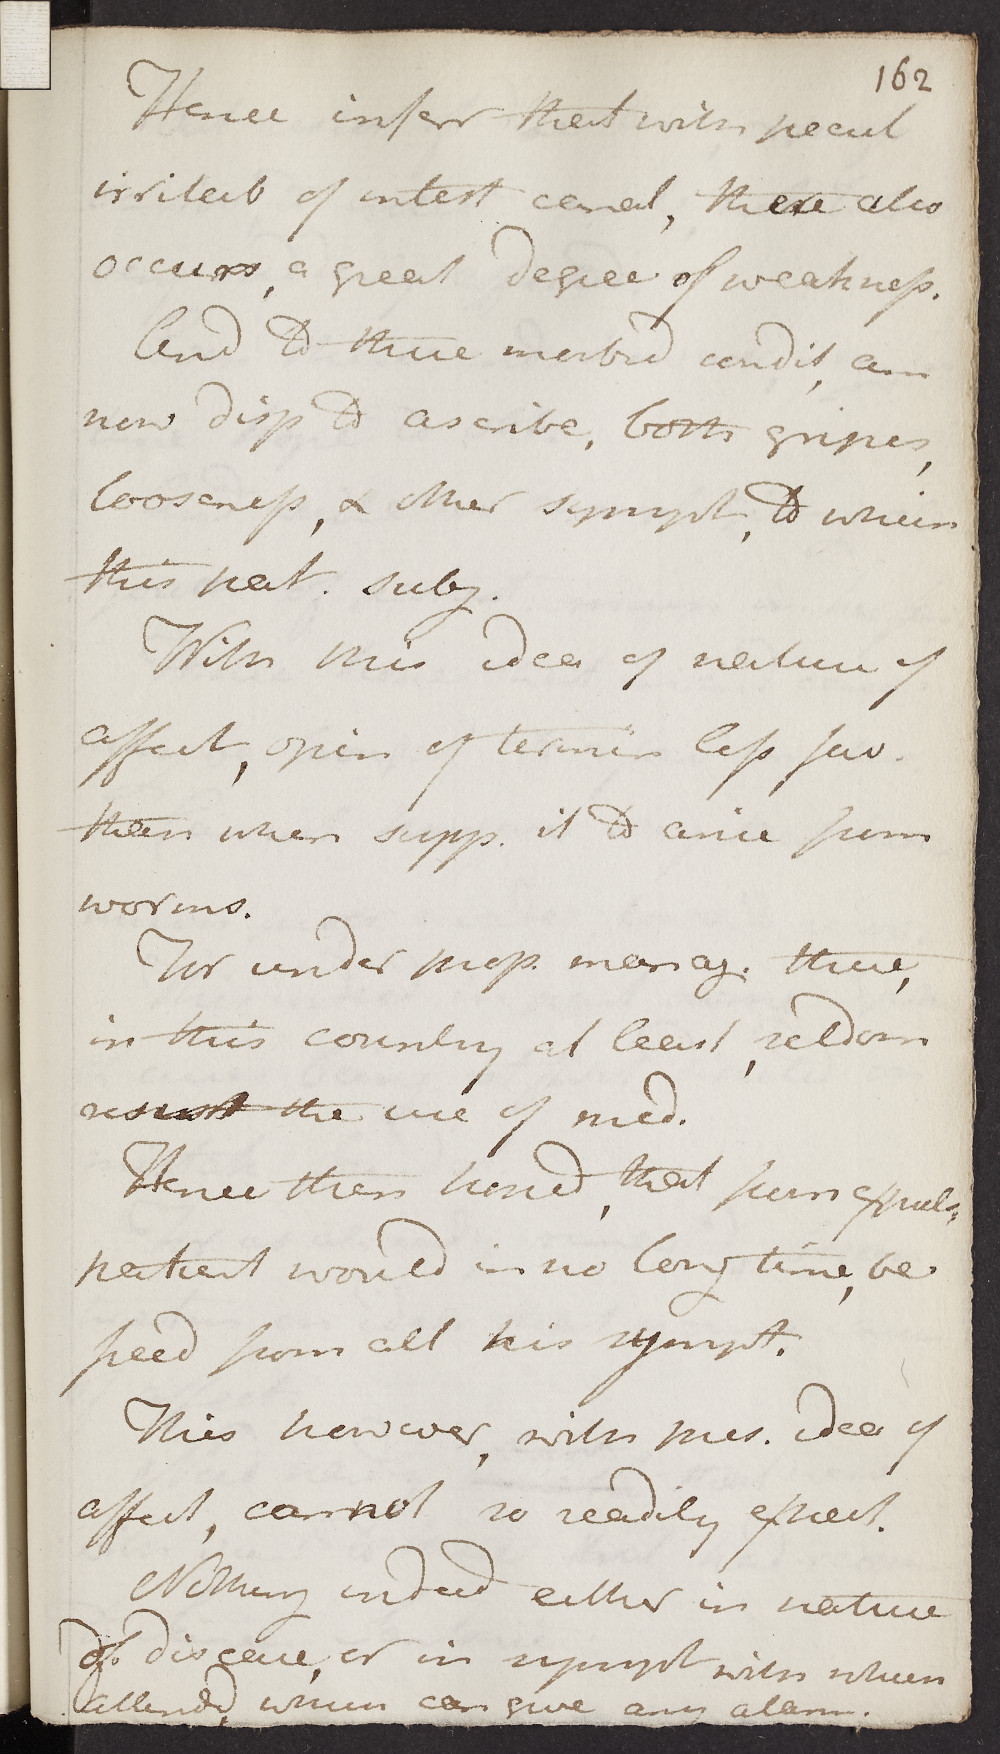 162
Hence infer that with pecul
irritab of intest canal, there also
occurs, a great degree of weakness.
And to these morbid condit, am
now disp to ascribe, both gripes,
looseness, & other sympt, to which
this pat. subj.
With this idea of nature of
affect, opin of termin less fav.
than when supp. it to arise from
worms.
For under prop. manag. these,
in this country at least, seldom
resist the use of med.
Hence then hoped, that from expuls,
patient would in no long time, be
freed from all his sympt.
This however, with pres. idea of
affect, cannot so readily expect.
Nothing indeed either in nature
of disease, or in sympt with which
attended, which can give any alarm.